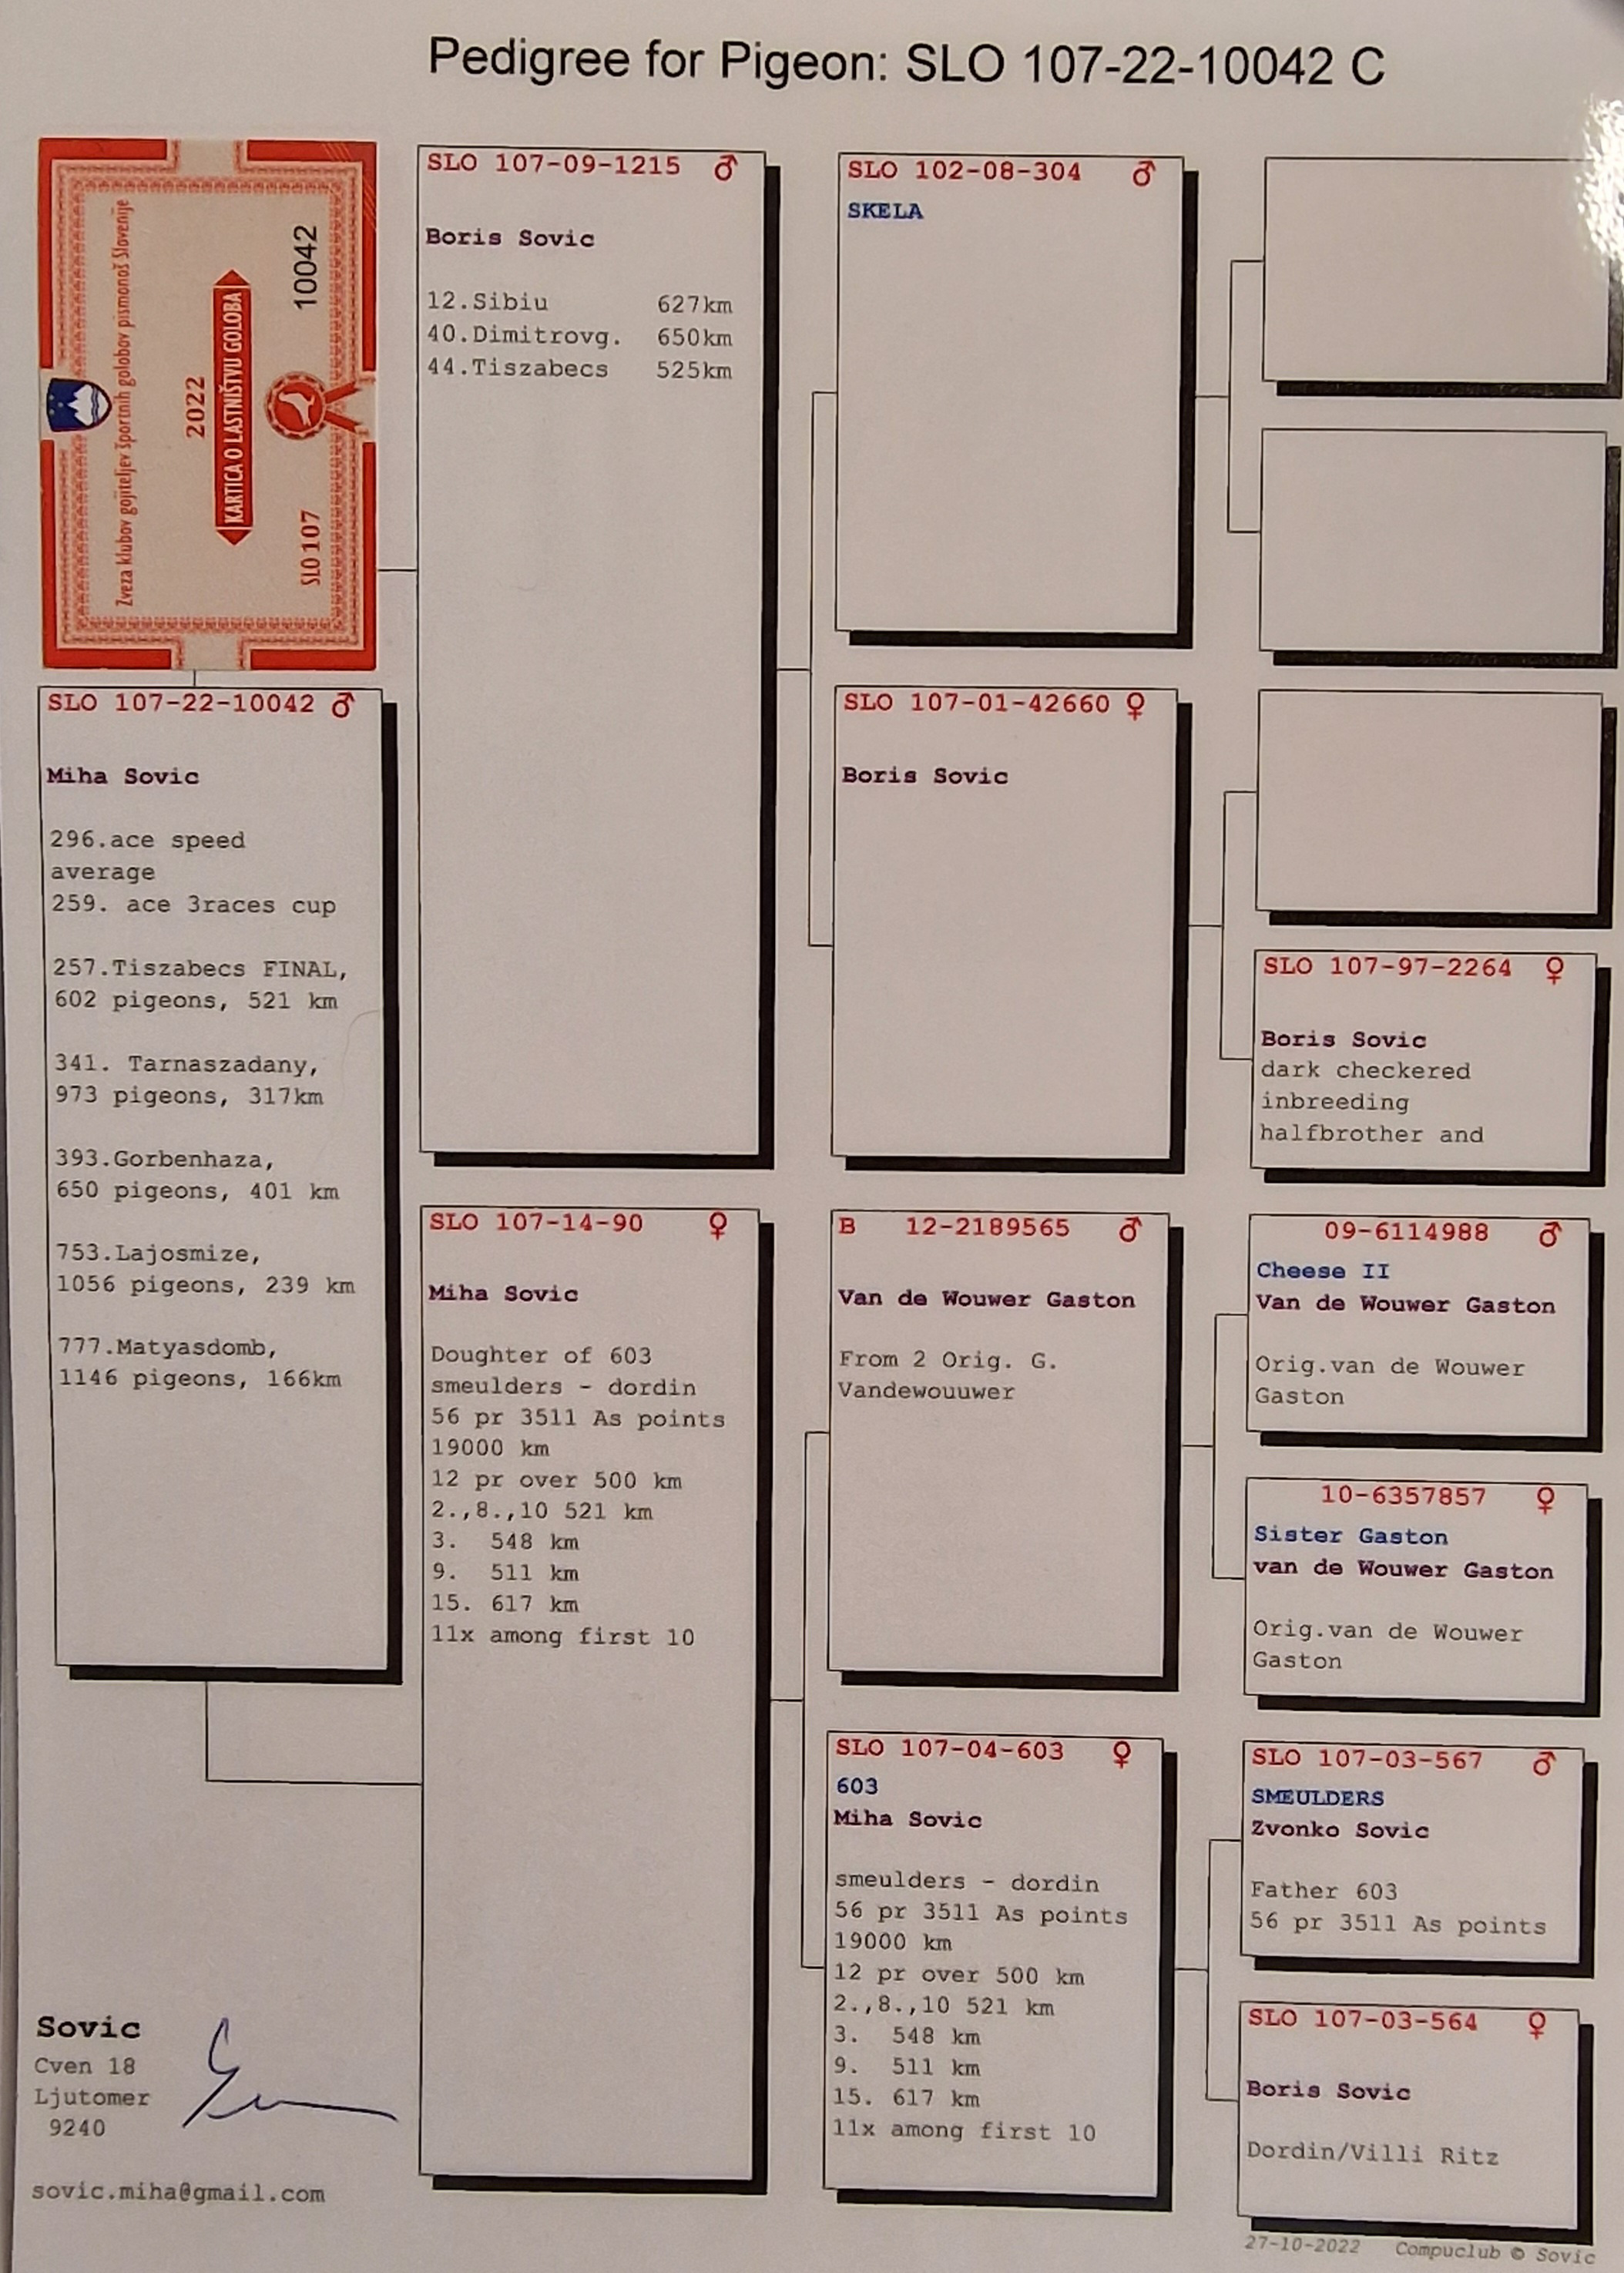 Pedigree for Pigeon: SLO 107-22-10042 C
Zveza klubov gojiteljev športnih golobov pismonoš Slovenije
2022
KARTICA O LASTNIŠTVU GOLOBA
SLO 107 10042
SLO 107-22-10042 ♂
Miha Sovic
296.ace speed
average
259. ace 3races cup
257.Tiszabecs FINAL,
602 pigeons, 521 km
341. Tarnaszadany,
973 pigeons, 317km
393.Gorbenhaza,
650 pigeons, 401 km
753.Lajosmize,
1056 pigeons, 239 km
777.Matyasdomb,
1146 pigeons, 166km
SLO 107-09-1215 ♂
Boris Sovic
12.Sibiu 627km
40.Dimitrovg. 650km
44.Tiszabecs 525km
SLO 107-14-90 ♀
Miha Sovic
Doughter of 603
smeulders - dordin
56 pr 3511 As points
19000 km
12 pr over 500 km
2.,8.,10 521 km
3. 548 km
9. 511 km
15. 617 km
11x among first 10
SLO 102-08-304 ♂
SKELA
SLO 107-01-42660 ♀
Boris Sovic
B 12-2189565 ♂
Van de Wouwer Gaston
From 2 Orig. G.
Vandewouuwer
SLO 107-04-603 ♀
603
Miha Sovic
smeulders - dordin
56 pr 3511 As points
19000 km
12 pr over 500 km
2.,8.,10 521 km
3. 548 km
9. 511 km
15. 617 km
11x among first 10
SLO 107-97-2264 ♀
Boris Sovic
dark checkered
inbreeding
halfbrother and
09-6114988 ♂
Cheese II
Van de Wouwer Gaston
Orig.van de Wouwer
Gaston
10-6357857 ♀
Sister Gaston
van de Wouwer Gaston
Orig.van de Wouwer
Gaston
SLO 107-03-567 ♂
SMEULDERS
Zvonko Sovic
Father 603
56 pr 3511 As points
SLO 107-03-564 ♀
Boris Sovic
Dordin/Villi Ritz
Sovic
Cven 18
Ljutomer
9240
sovic.miha@gmail.com
27-10-2022 Compuclub © Sovic